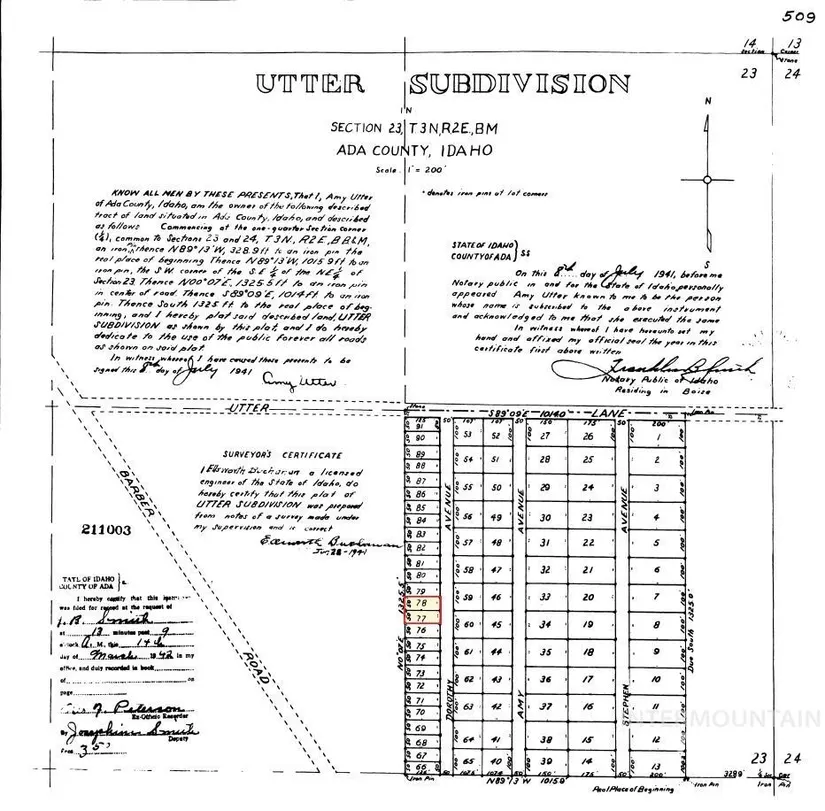 509
14 13
Section Corner
Stone
23 24
UTTER SUBDIVISION
IN
SECTION 23, T3N, R2E., BM
ADA COUNTY, IDAHO
Scale 1" = 200'
N
S
KNOW ALL MEN BY THESE PRESENTS, That I, Amy Utter
of Ada County, Idaho, am the owner of the following described
tract of land situated in Ada County, Idaho, and described
as follows Commencing at the one-quarter Section Corner
(¼), common to Sections 23 and 24, T3N, R2E, B.B&M,
an iron pin thence N89°13'W, 328.9 ft to an iron pin the
real place of beginning Thence N89°13'W, 1015.9 ft to an
iron pin, the S.W. corner of the S.E ¼ of the NE ¼ of
Section 23. Thence N00°07'E, 1325.5 ft to an iron pin
in center of road. Thence S89°09'E, 1014 ft to an iron
pin. Thence South 1325 ft to the real place of beg-
inning, and I hereby plat said described land, UTTER
SUBDIVISION as shown by this plat, and I do hereby
dedicate to the use of the public forever all roads
as shown on said plat.
In witness whereof I have caused these presents to be
signed this 8th day of July 1941
Amy Utter
• denotes iron pins at lot corners
STATE OF IDAHO
COUNTY OF ADA SS
On this 8th day of July 1941, before me
Notary public in and for the State of Idaho personally
appeared Amy Utter known to me to be the person
whose name is subscribed to the above instrument
and acknowledged to me that she executed the same
In witness whereof I have hereunto set my
hand and affixed my official seal the year in this
certificate first above written
Notary Public of Idaho
Residing in Boise
UTTER LANE
S89°09'E 1014.0'
BARBER ROAD
SURVEYOR'S CERTIFICATE
I Ellsworth Buchanan a licensed
engineer of the State of Idaho, do
hereby certify that this plat of
UTTER SUBDIVISION was prepared
from notes of a survey made under
my supervision and is correct
Ellsworth Buchanan
211003
STATE OF IDAHO
COUNTY OF ADA
I hereby certify that this
was filed for record at the request of
J. B. Smith
at 13 minutes past 9
o'clock A. M., this 14th
day of March 1942 in my
office, and duly recorded in book
of on
page
Peterson
Ex-Officio Recorder
By Josephine Smith
Deputy
Fees 3.50
91 50 50 50 200'
90 53 52 27 26 1
89
88 54 51 28 25 2
87
86 55 50 29 24 3
85
84 56 49 30 23 4
83
82 57 48 31 22 5
81
80 58 47 32 21 6
79
78 59 46 33 20 7
77
76 60 45 34 19 8
75
74 61 44 35 18 9
73
72 62 43 36 17 10
71
70 63 42 37 16 11
69
68 64 41 38 15 12
67
66 65 40 39 14 13
DOROTHY AVENUE
AMY AVENUE
STEPHEN AVENUE
N0°07'E 1325.5'
Due South 1325.0'
Iron Pin N89°13'W 1015.9' Iron Pin 328.9'
Real Place of Beginning
23 24
INTERMOUNTAIN